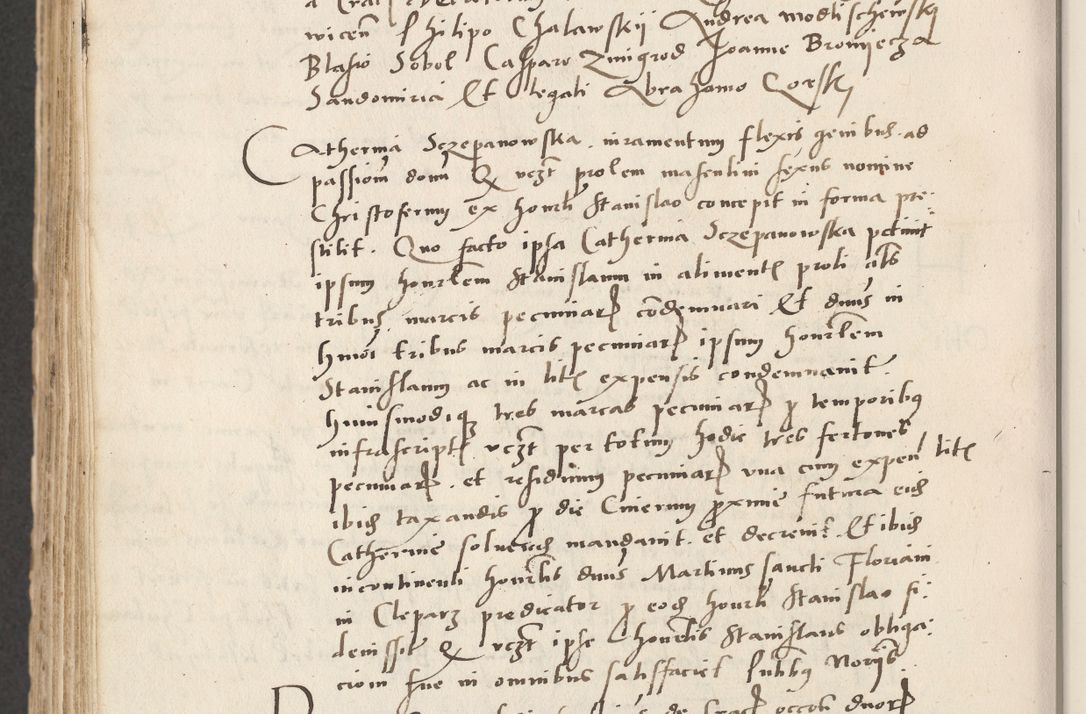 wicen Philipo Chalawskij Andrea Modlischewskj
Blasio Sobol Casparo Zmigrod Joanne Bromiecza
Sandomiria Et legali Abrahamo
Catherina Sczepanowska iuramentum flexis genibus ad
passiom domi Q vczt prolem masculini sexus nomine
Christoferum ex honrli Stanislao concepit in forma pre:
stitit. Quo facto ipsa Catherina Sczepanowska petiuit
ipsum honrlem Stanislaum in aliment proli als
tribus marcis pecuniar condemnari Et dnus in
hmoi tribus marcis pecuniar ipsum honrlem
Stanislaum ac in lit expensis condemnauit.
huiusmodiq tres marcas pecuniar p temporibus
infrascript vczt per totum hodie tres fertones
pecuniar et residuum pecuniar vna cum expen lit
ibid taxandis p die Cinerum proxime futura eid
Catherine soluend mandauit et decreuit. Et ibid
incontinenti honrlis dnus Martinus sancti Floriani
in Cleparz predicator p eod honrli Stanislao fi:
deiussit Q vczt ipse honrlis Stanislaus obliga:
ciom sue in omnibus satisfaciet Subbus Norijs